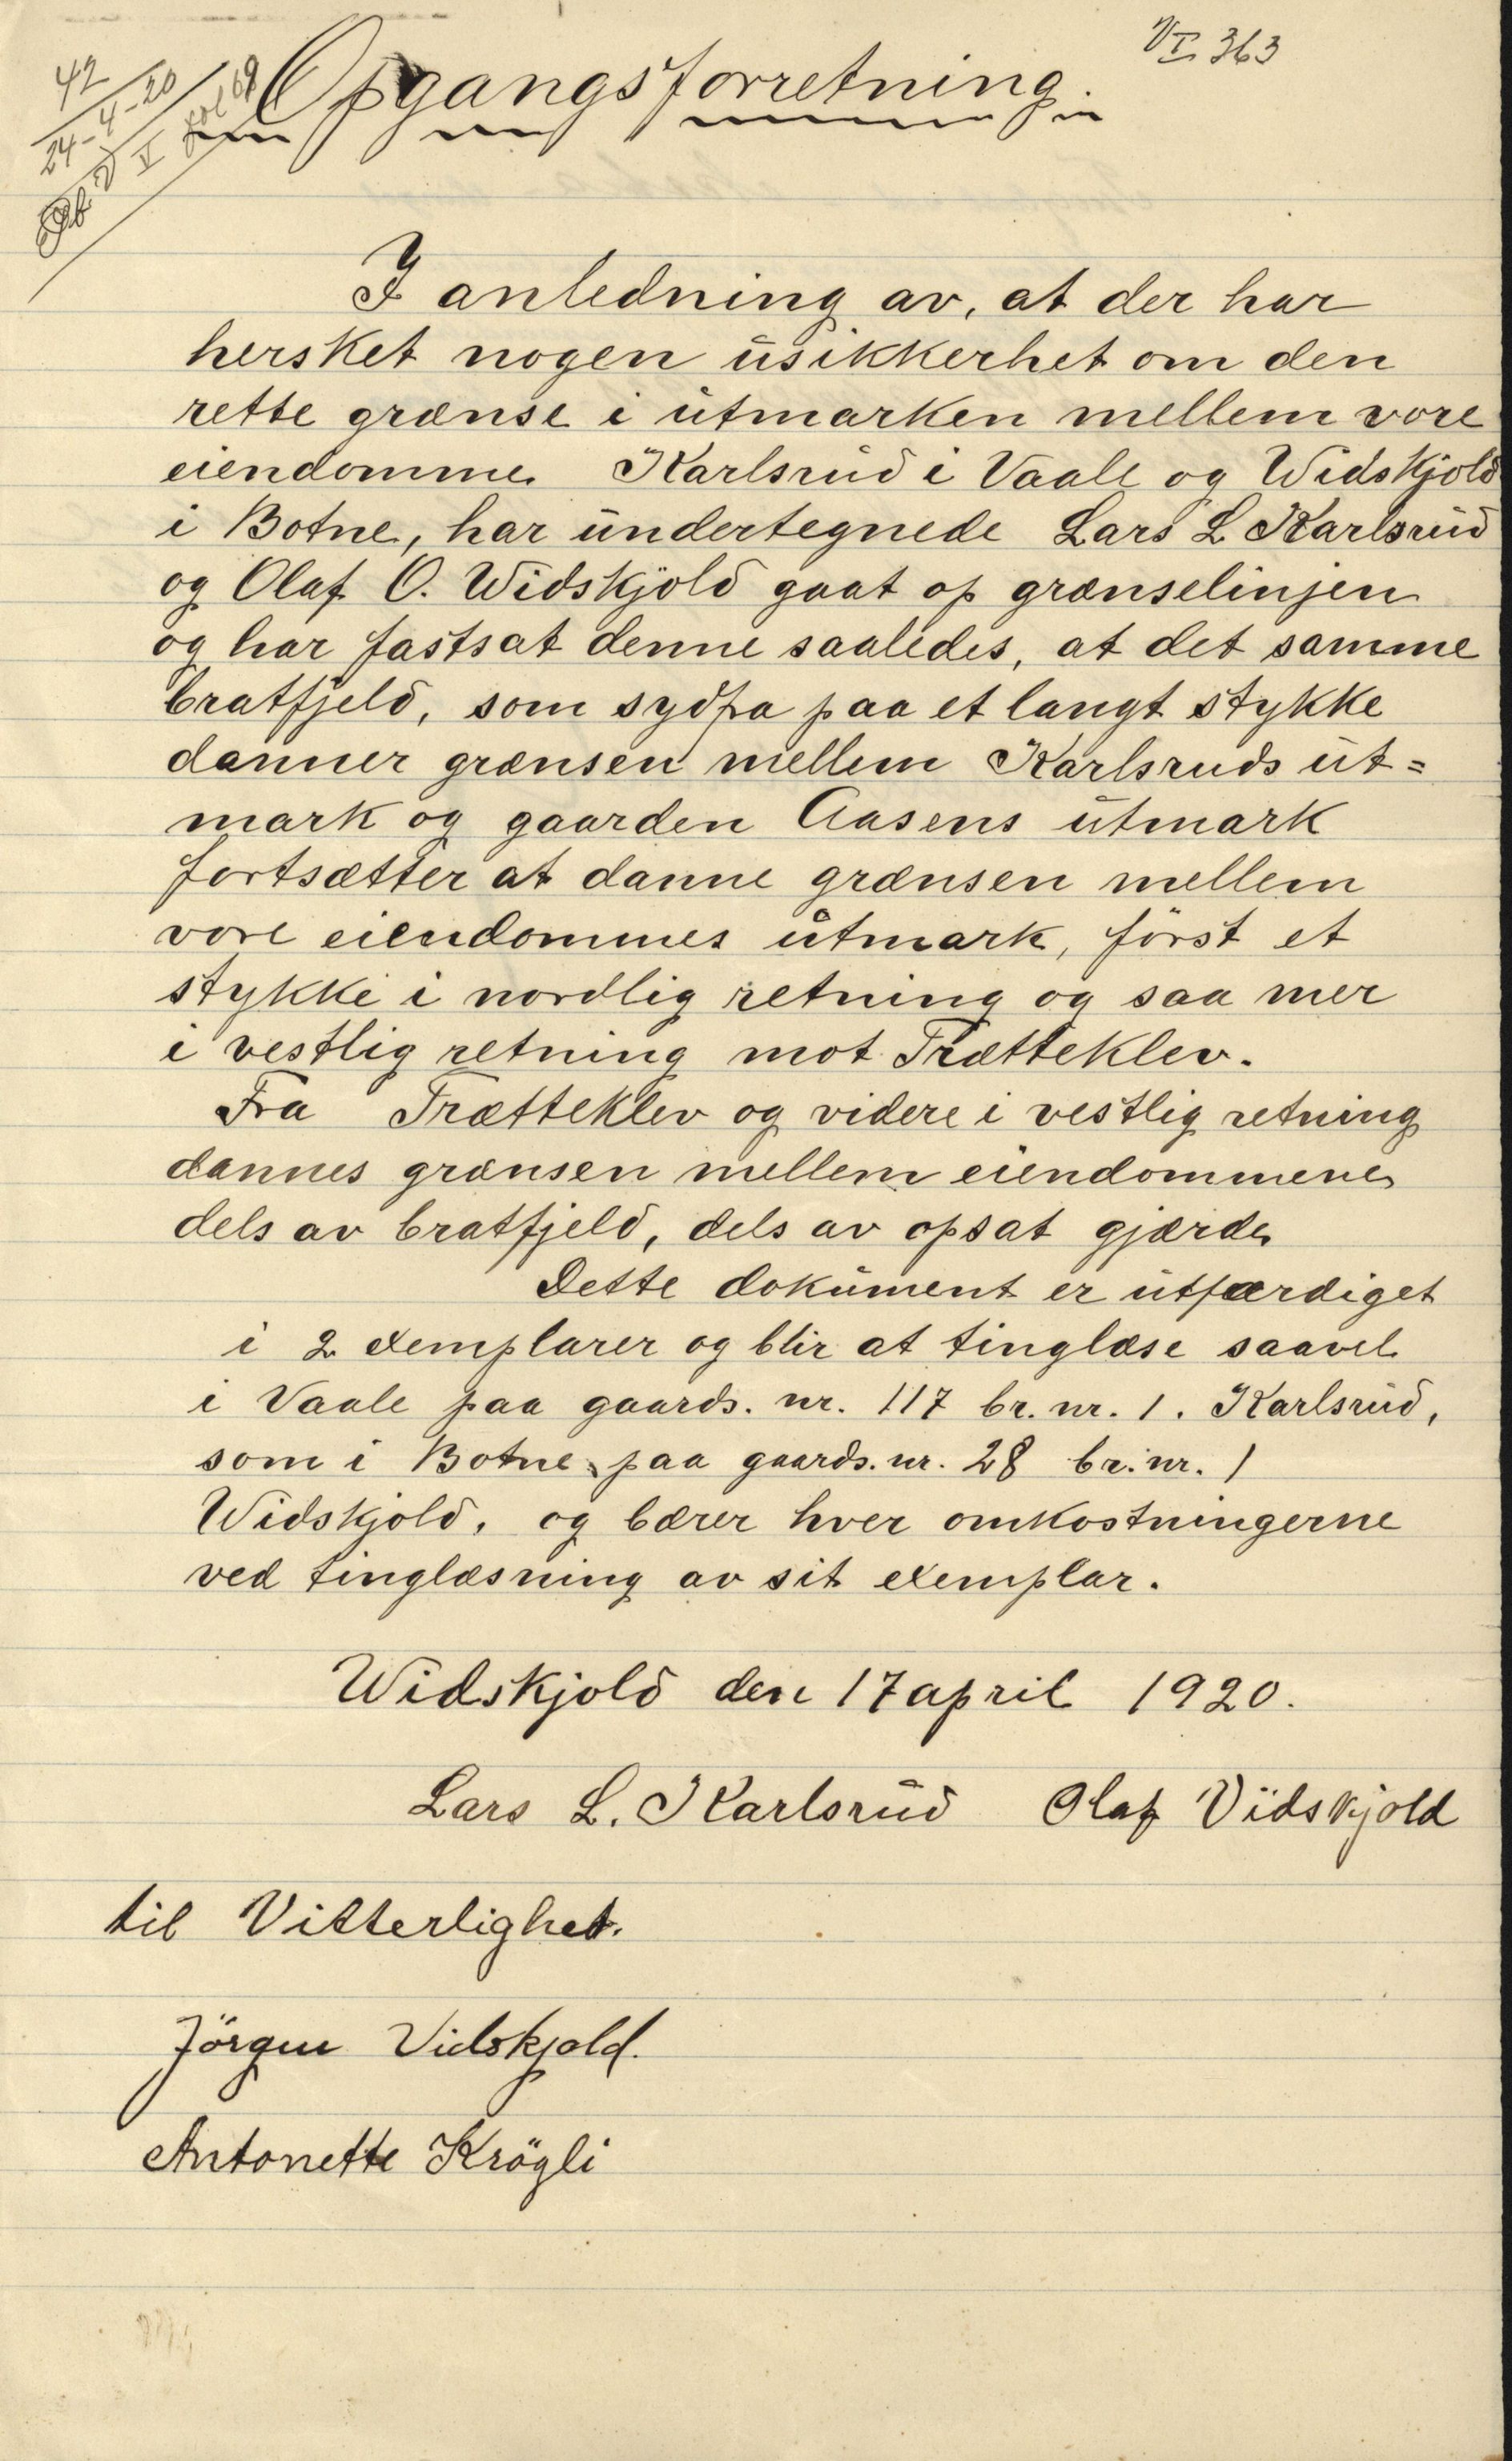 VI 363
42
24-4-20
V fol 69
Opgangsforretning.
I anledning av, at der har
hersket nogen usikkerhet om den
rette grænse i utmarken mellem vore
eiendomme Karlsrud i Vaale og Widskjold
i Botne, har undertegnede Lars L Karlsrud
og Olaf O. Widskjold gaat op grænselinjen
og har fastsat denne saaledes, at det samme
bratfjeld, som sydfra paa et langt stykke
danner grænsen mellem Karlsruds ut=
mark og gaarden Aasens utmark
fortsætter at danne grænsen mellem
vore eiendommes utmark, först et
stykke i nordlig retning og saa mer
i vestlig retning mot Trætteklev.
Fra Trætteklev og videre i vestlig retning
dannes grænsen mellem eiendommene
dels av bratfjeld, dels av opsat gjærde
Dette dokument er utfærdiget
i 2 exemplarer og blir at tinglæse saavel
i Vaale paa gaards. nr. 117 br. nr. 1. Karlsrud,
som i Botne paa gaards. nr. 28 br. nr. 1
Widskjold, og bærer hver omkostningerne
ved tinglæsning av sit exemplar.
Widskjold den 17 april 1920.
Lars L. Karlsrud Olaf Vidskjold
til Vitterlighet.
Jörgen Vidskjold.
Antonette Krögli